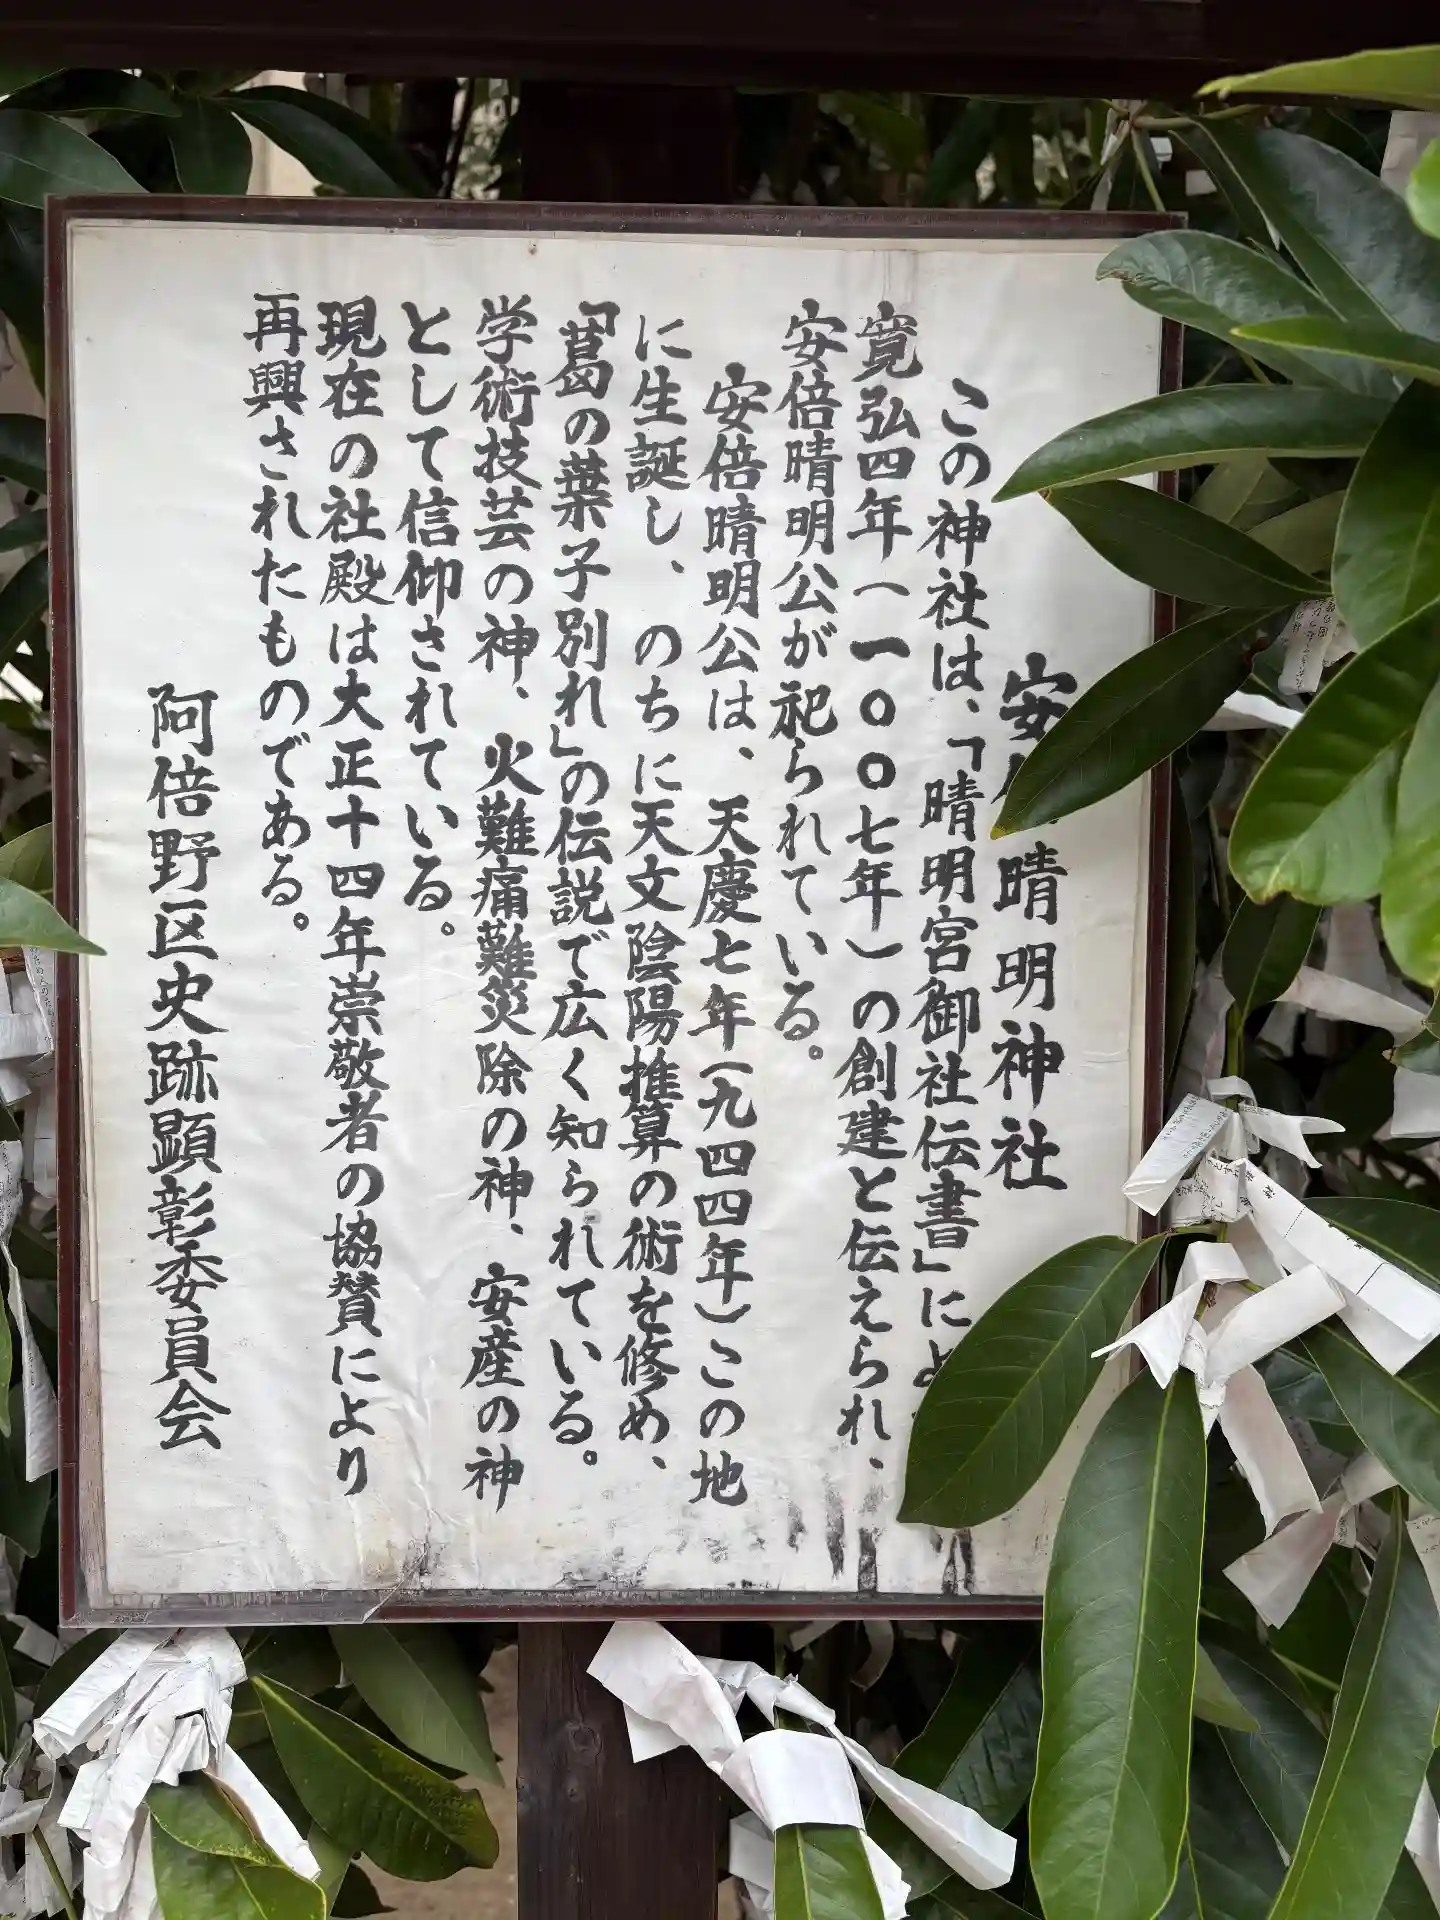 安 晴明神社
この神社は、「晴明宮御社伝書」に
寛弘四年(一〇〇七年)の創建と伝えられ、
安倍晴明公が祀られている。
安倍晴明公は、天慶七年(九四四年)この地
に生誕し、のちに天文陰陽推算の術を修め、
「葛の葉子別れ」の伝説で広く知られている。
学術技芸の神、火難痛難災除の神、安産の神
として信仰されている。
現在の社殿は大正十四年崇敬者の協賛により
再興されたものである。
阿倍野区史跡顕彰委員会